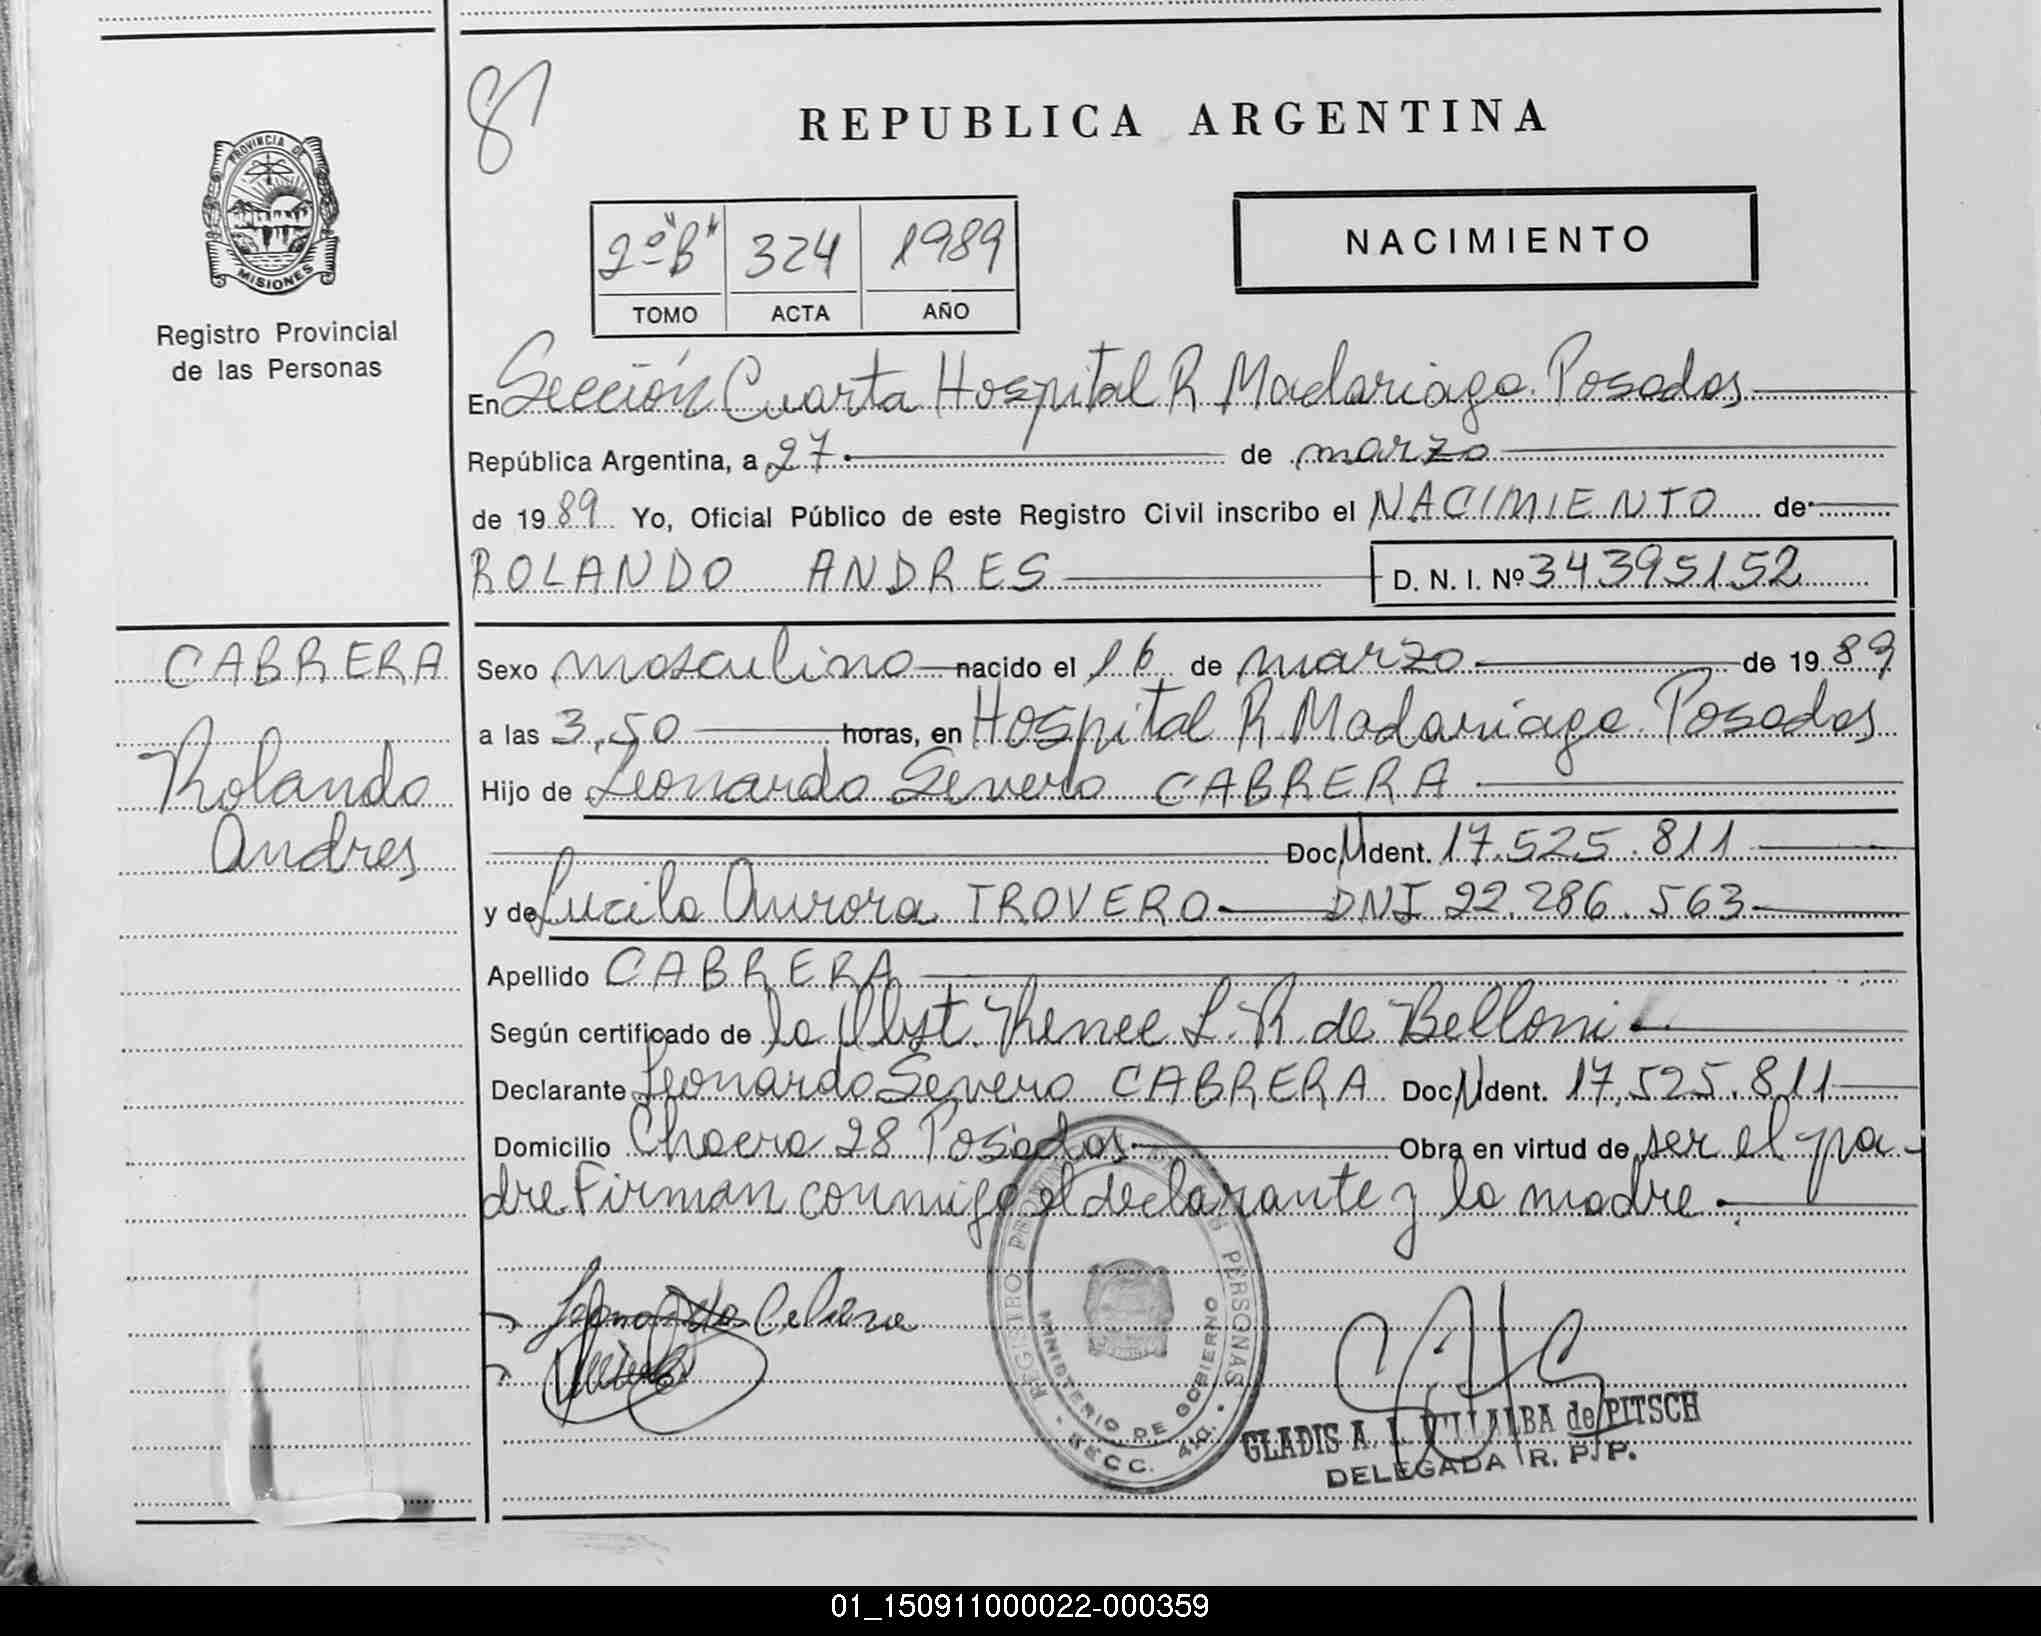 81
REPUBLICA ARGENTINA
PROVINCIA DE
MISIONES
Registro Provincial
de las Personas
2º "B" 324 1989
TOMO ACTA AÑO
NACIMIENTO
En Sección Cuarta Hospital R Madariaga. Posadas
República Argentina, a 27 de marzo
de 1989 Yo, Oficial Público de este Registro Civil inscribo el NACIMIENTO de
ROLANDO ANDRES D. N. I. Nº 34395152
CABRERA
Rolando
Andres
Sexo masculino nacido el 16 de marzo de 1989
a las 3,50 horas, en Hospital R Madariaga. Posadas
Hijo de Leonardo Severo CABRERA
Doc. N Ident. 17.525.811
y de Lucila Aurora TROVERO DNI 22.286.563
Apellido CABRERA
Según certificado de la Obst. Renee L. R. de Belloni
Declarante Leonardo Severo CABRERA Doc. N Ident. 17.525.811
Domicilio Chacra 28 Posadas Obra en virtud de ser el pa-
dre. Firman conmigo el declarante y la madre.
REGISTRO PERSONAS
MINISTERIO DE GOBIERNO
SECC. 4ta.
GLADIS A. VILLALBA de PITSCH
DELEGADA R. P. P.
01_150911000022-000359